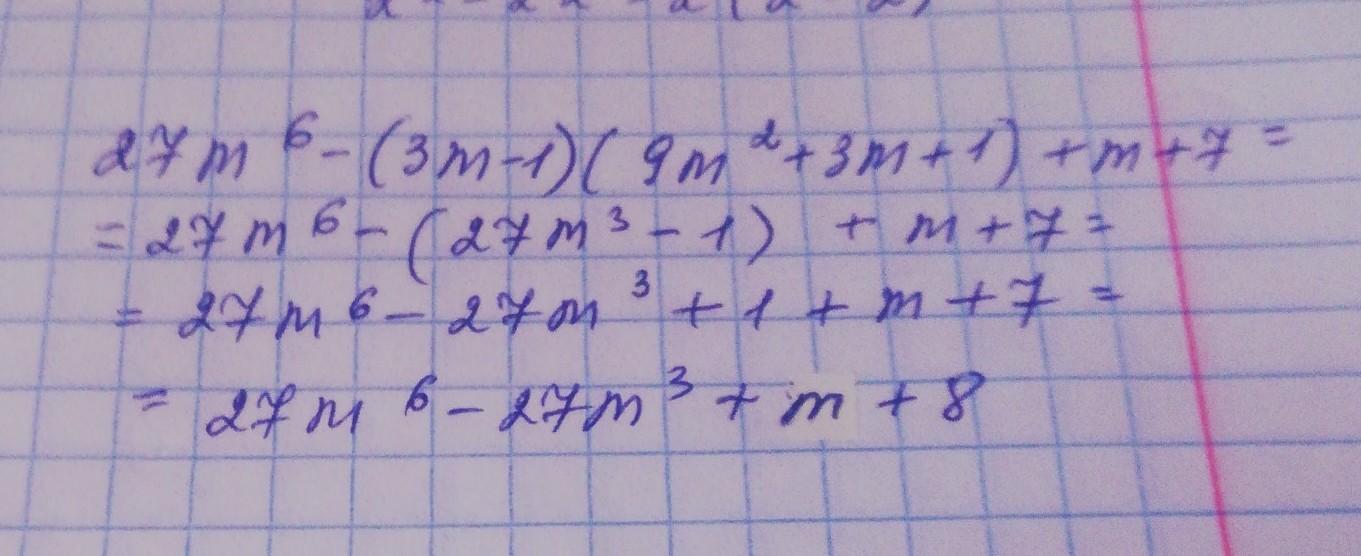 27m⁶-(3m-1)(9m²+3m+1)+m+7=
=27m⁶-(27m³-1)+m+7=
=27m⁶-27m³+1+m+7=
=27m⁶-27m³+m+8